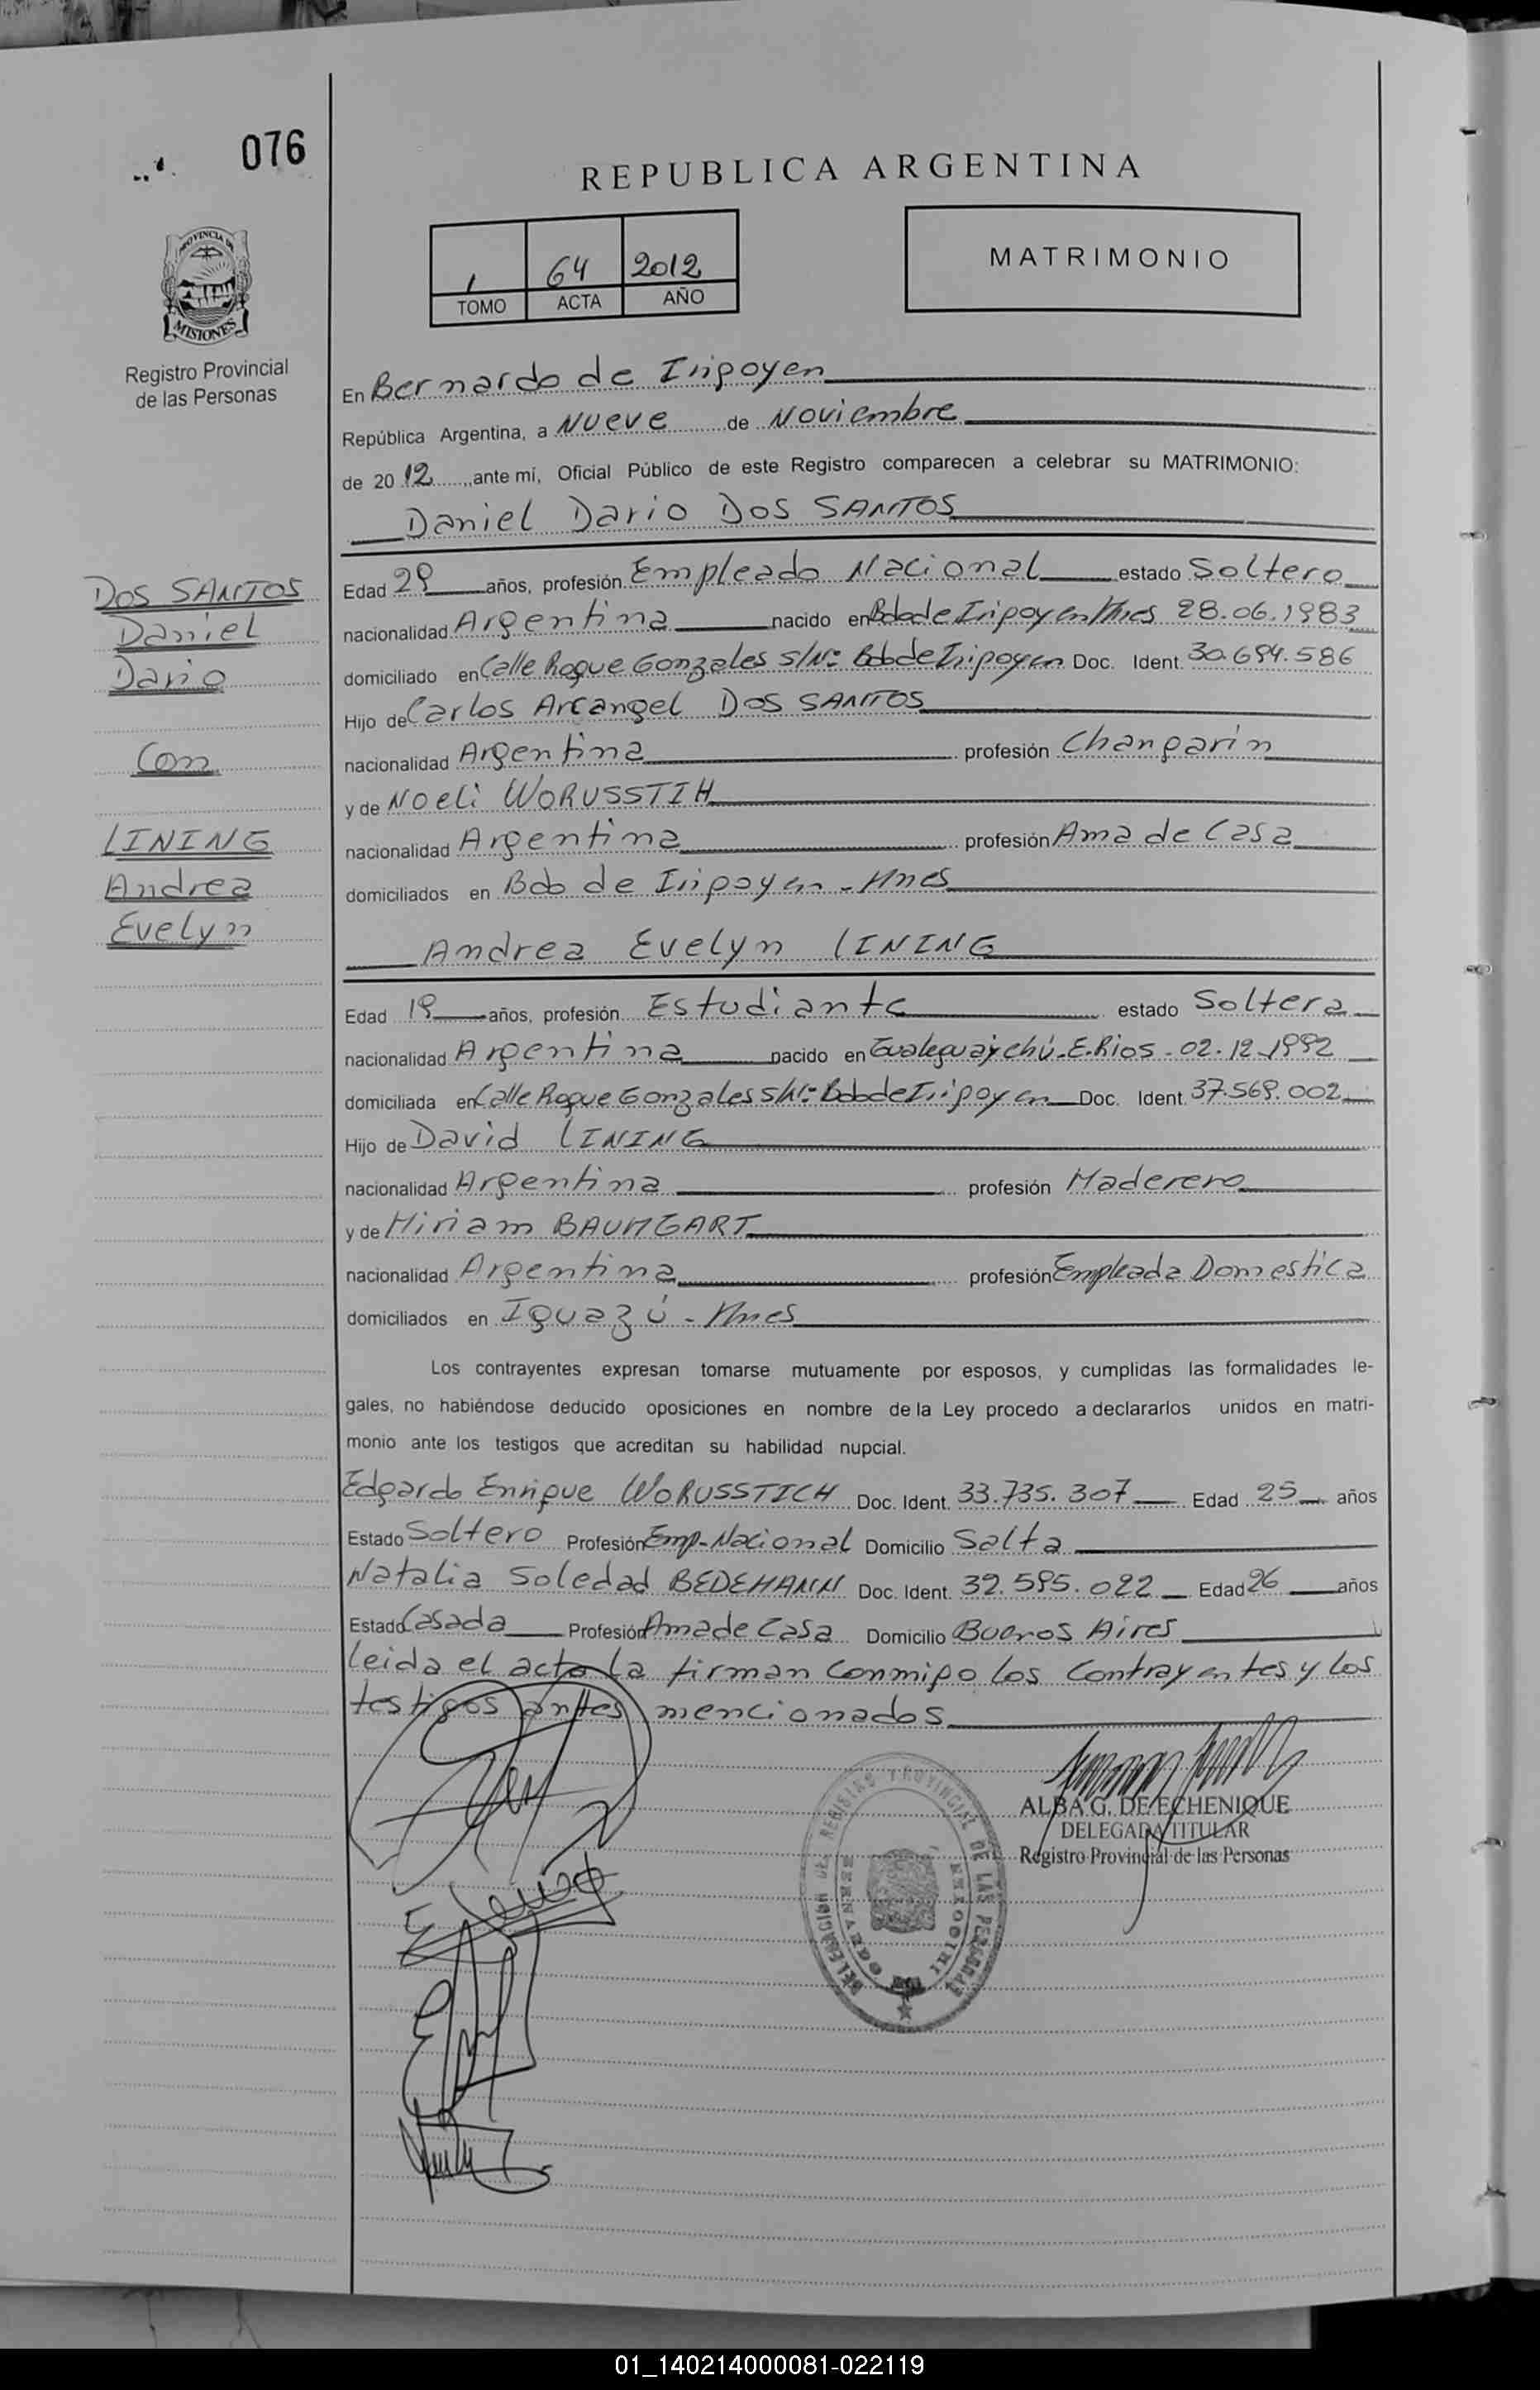 076
REPUBLICA ARGENTINA
1 64 2012
TOMO ACTA AÑO
MATRIMONIO
PROVINCIA DE
MISIONES
Registro Provincial
de las Personas
En Bernardo de Irigoyen
República Argentina, a Nueve de Noviembre
de 2012, ante mi, Oficial Público de este Registro comparecen a celebrar su MATRIMONIO:
Daniel Dario DOS SANTOS
DOS SANTOS
Daniel
Dario
Con
LINING
Andrea
Evelyn
Edad 29 años, profesión Empleado Nacional estado Soltero
nacionalidad Argentina nacido en Bdo de Irigoyen Mnes 28.06.1983
domiciliado en Calle Roque Gonzales S/Nº Bdo de Irigoyen Doc. Ident. 30.694.586
Hijo de Carlos Arcangel DOS SANTOS
nacionalidad Argentina profesión Changarin
y de Noeli WORUSSTIH
nacionalidad Argentina profesión Ama de Casa
domiciliados en Bdo de Irigoyen - Mnes
Andrea Evelyn LINING
Edad 19 años, profesión Estudiante estado Soltera
nacionalidad Argentina nacido en Gualeguaychú - E. Rios - 02.12.1992
domiciliada en Calle Roque Gonzales S/Nº Bdo de Irigoyen Doc. Ident. 37.569.002
Hijo de David LINING
nacionalidad Argentina profesión Maderero
y de Miriam BAUMGART
nacionalidad Argentina profesión Empleada Domestica
domiciliados en Iguazú - Mnes
Los contrayentes expresan tomarse mutuamente por esposos, y cumplidas las formalidades le-
gales, no habiéndose deducido oposiciones en nombre de la Ley procedo a declararlos unidos en matri-
monio ante los testigos que acreditan su habilidad nupcial.
Edgardo Enrique WORUSSTICH Doc. Ident. 33.735.307 Edad 25 años
Estado Soltero Profesión Emp. Nacional Domicilio Salta
Natalia Soledad BEDEMANN Doc. Ident. 32.595.022 Edad 26 años
Estado Casada Profesión Ama de Casa Domicilio Buenos Aires
leida el acta la firman conmigo los Contrayentes y los
testigos antes mencionados
ALBA G. DE ECHENIQUE
DELEGADA TITULAR
Registro Provincial de las Personas
DELEGACIÓN DEL REGISTRO PROVINCIAL DE LAS PERSONAS
BERNARDO DE IRIGOYEN
01_140214000081-022119